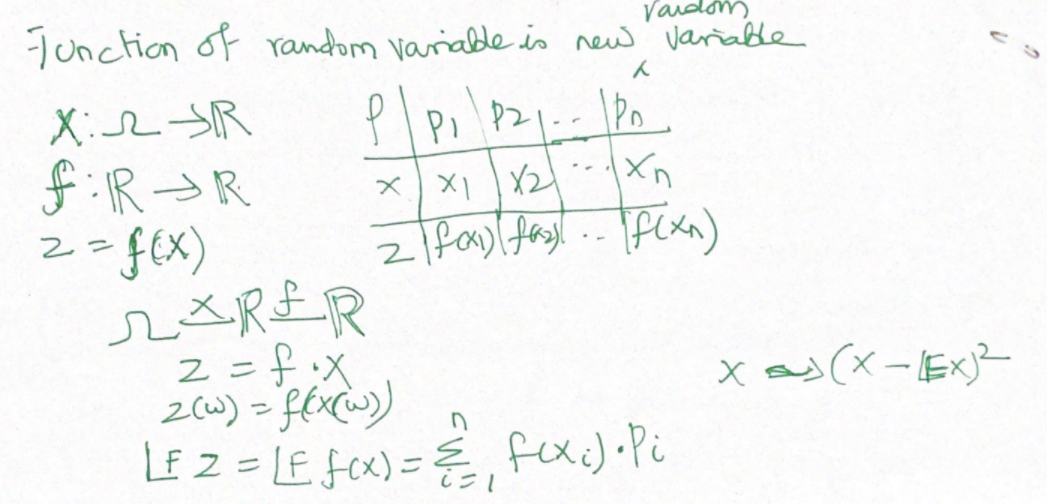 random
Function of random variable is new variable
X: Ω → ℝ
f: ℝ → ℝ
z = f(X)
P | P1 | P2 | ... | Pn
x | x1 | x2 | ... | xn
z | f(x1) | f(x2) | ... | f(xn)
Ω —x— ℝ —f— ℝ
z = f · X
z(ω) = f(x(ω))
x → (x - 𝔼x)²
𝔼 z = 𝔼 f(x) = Σ i=1 n f(xi) · Pi